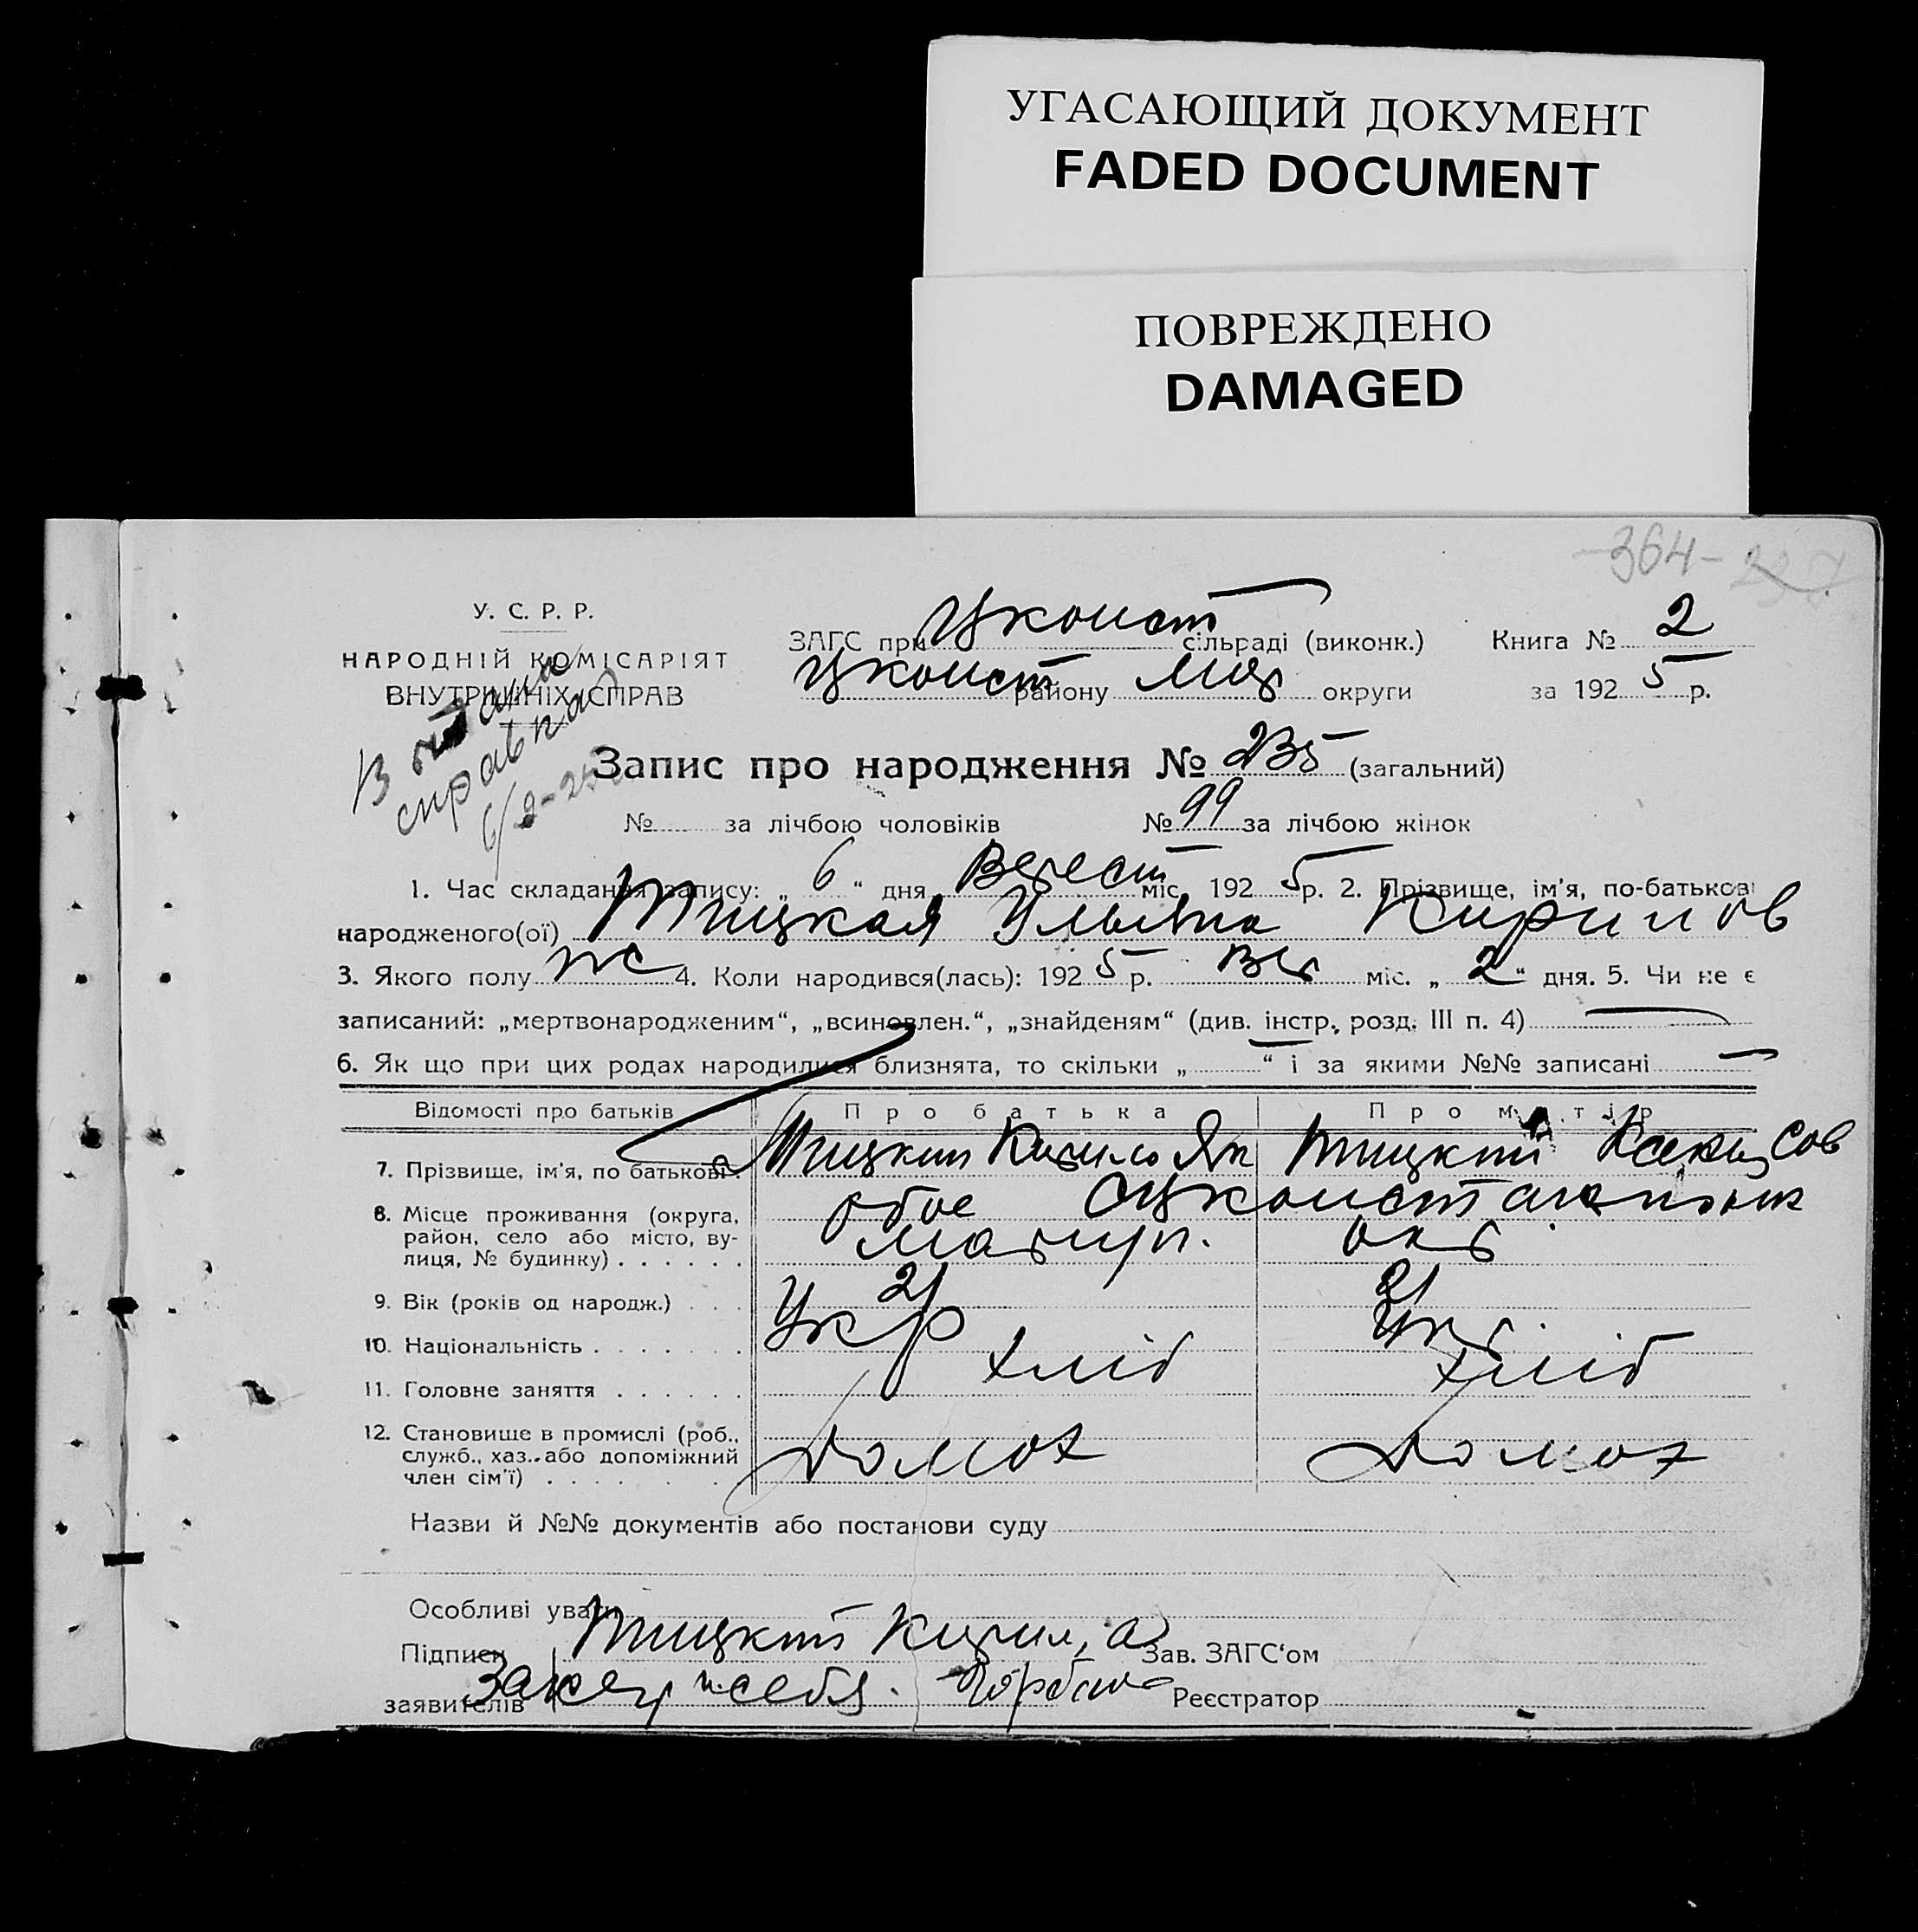 УГАСАЮЩИЙ ДОКУМЕНТ
FADED DOCUMENT
ПОВРЕЖДЕНО
DAMAGED
364-
У. С. Р. Р.
НАРОДНІЙ КОМІСАРІЯТ
ВНУТРІШНІХ СПРАВ
ЗАГС при Уконст сільраді (виконк.) Книга № 2
Уконст району округи за 192 5 р.
справка
Запис про народження № 235 (загальний)
№ за лічбою чоловіків № 99 за лічбою жінок
1. Час складання запису: „ 6 “ дня Верест міс. 192 5 р. 2. Прізвище, ім'я, по-батькові
народженого(ої) Тицкая Ульяна Кирилов
3. Якого полу ж 4. Коли народився(лась): 192 5 р. Вер міс. „ 2 “ дня. 5. Чи не є
записаний: „мертвонародженим“, „всиновлен.“, „знайденям“ (див. інстр., розд. III п. 4)
6. Як що при цих родах народилися близнята, то скільки „ “ і за якими №№ записані
Відомості про батьків Про батька Про матір
7. Прізвище, ім'я, по батькові. Тицкий Кирило Як Тицкий
8. Місце проживання (округа, район, село або місто, вулиця, № будинку) обое
Мариуп. окр
9. Вік (років од народж.) 21 21
10. Національність Укр Укр.
11. Головне заняття хліб хліб
12. Становище в промислі (роб., служб., хаз. або допоміжний член сім'ї) Домох Домох
Назви й №№ документів або постанови суду
Особливі уваги
Підписи Тицкий Кирил, а Зав. ЗАГС'ом
заявителів Реєстратор